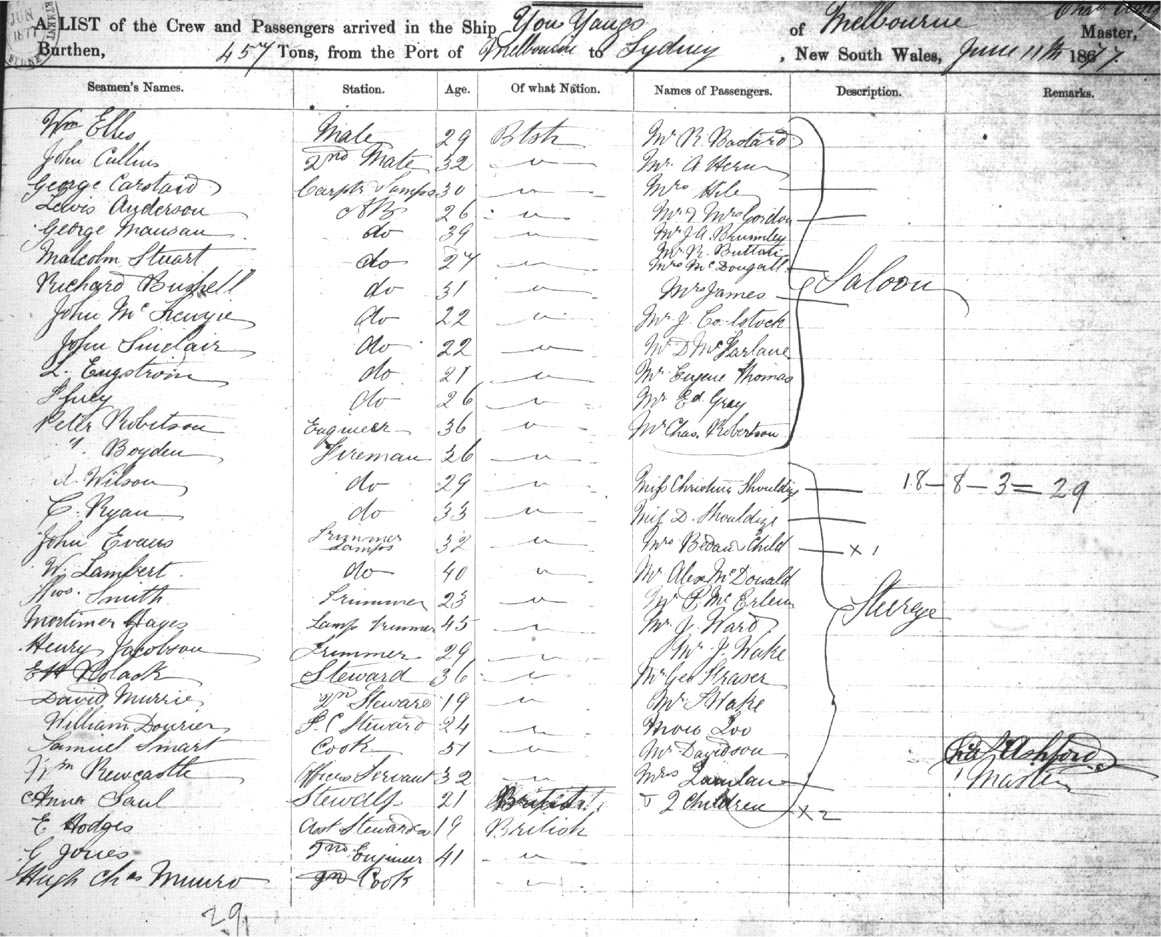 JUN
1877
A LIST of the Crew and Passengers arrived in the Ship You Yangs of Melbourne
Burthen, 457 Tons, from the Port of Melbourne to Sydney, New South Wales, June 11th 1877 Master,
Seamen's Names. Station. Age. Of what Nation. Names of Passengers. Description. Remarks.
Wm Ellis Mate 29 Btsh Mr R. Bastard
John Cullins 2nd Mate 32 " Mr A Hern
George Carstard Carptr Lamps 30 " Mrs Hile
Lewis Anderson AB 26 " Mr & Mrs Gordon
George Mansan do 39 " Mr J.A. Brumley
Malcolm Stuart do 27 " Mr R. Button
Mrs McDougall
Richard Bushell do 31 " Mrs James Saloon
John McKenzie do 22 " Mr J
John Sinclair do 22 " Mr D McFarlane
L. Engström do 21 " Mr Eugene Thomas
do 26 " Mr Ed Gray
Peter Robertson Engineer 36 " Mr Chas. Robertson
" Boyden Fireman 36 "
Wilson do 29 " Miss Christina 18 – 8 – 3 = 29
C. Ryan do 33 " Miss D.
John Evans Trimmer Lamps 32 " Mrs Child x 1
W. Lambert do 40 " Mr Alex McDonald
Thos. Smith Trimmer 23 " Mr P.
Mortimer Hayes Lamp Trimmer 45 " Mr J. Ward
Henry Jacobson Trimmer 29 " Mr J. Wake
Steward 36 " Mr Geo Fraser
David Murrie Steward 19 " Mr Wake
William Steward 24 "
Samuel Smart Cook 51 " Mr Davidson Ashford
Wm Newcastle Servant 32 " Mrs Master
Anna Saul Stewdss 21 British 2 Children x 2
E Hodges Asst Stewardess 19 British
G Jones 2nd Engineer 41 "
Hugh Chas Munro Cook "
29